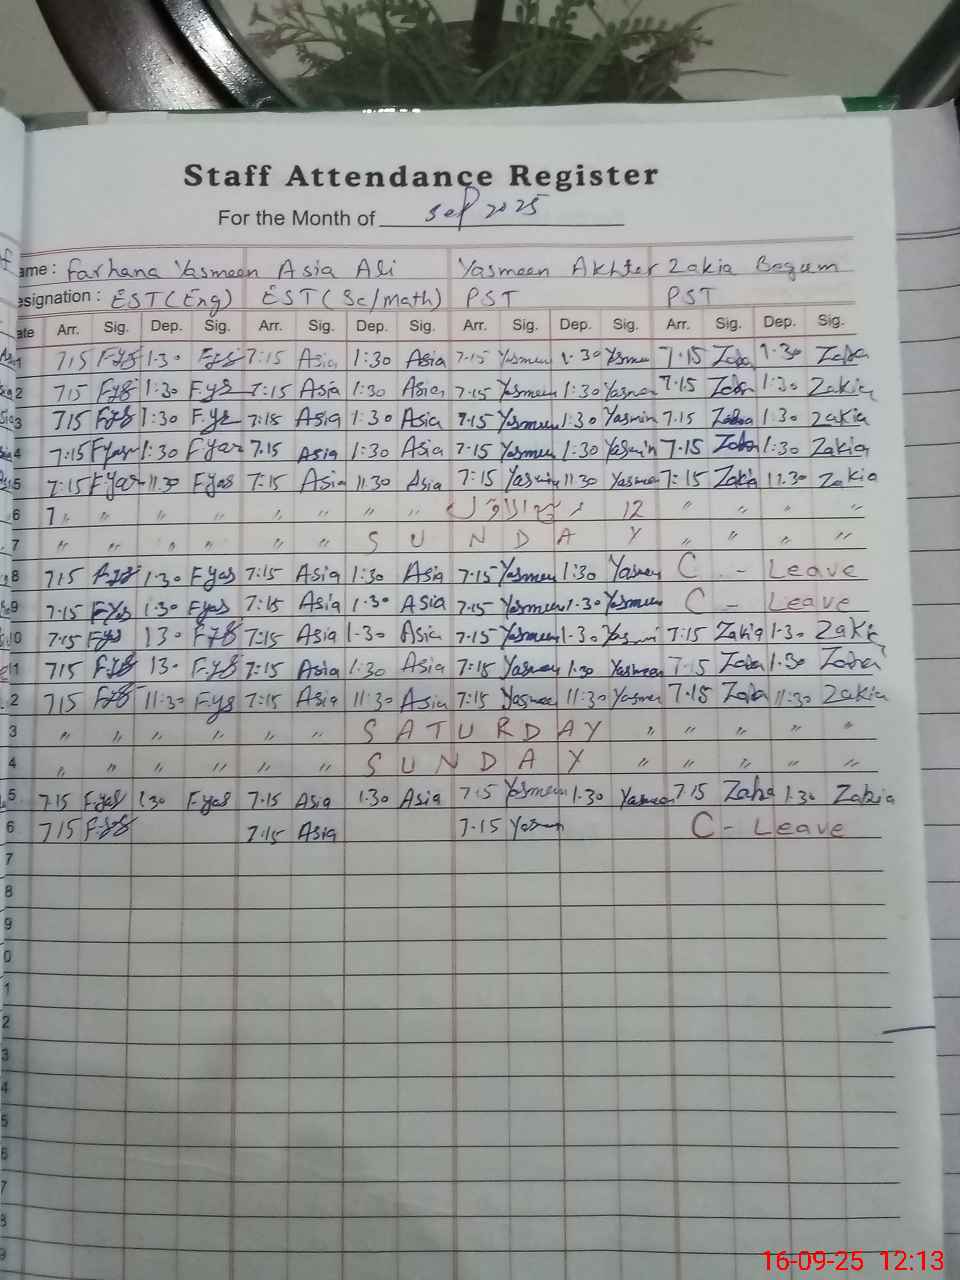 Staff Attendance Register
For the Month of Sep 2025
ame : Farhana Yasmeen Asia Ali Yasmeen Akhter Zakia Begum
esignation : EST (Eng) EST (Sc/math) PST PST
ate Arr. Sig. Dep. Sig. Arr. Sig. Dep. Sig. Arr. Sig. Dep. Sig. Arr. Sig. Dep. Sig.
1 7:15 1:30 7:15 Asia 1:30 Asia 7:15 Yasmeen 1:30 7:15 1:30
2 715 1:30 7:15 Asia 1:30 Asia 7:15 Yasmeen 1:30 7:15 1:30 Zakia
3 715 1:30 7:15 Asia 1:30 Asia 7:15 Yasmeen 1:30 Yasmin 7.15 1:30 Zakia
4 7:15 Fyas 1:30 Fyas 7.15 Asia 1:30 Asia 7:15 Yasmeen 1:30 Yasmin 7.15 1:30 Zakia
5 7:15 Fyas 11:30 Fyas 7:15 Asia 11:30 Asia 7:15 Yasmin 11:30 Yasmeen 7:15 Zakia 11:30 Zakia
6 " " " " " " " " ربیع الاول 12 " " " "
7 " " " " " " S U N D A Y " " " "
8 715 1:30 Fyas 7:15 Asia 1:30 Asia 7:15 Yasmeen 1:30 Yasmeen C - Leave
9 7:15 Fyas 1:30 Fyas 7:15 Asia 1:30 Asia 7:15 Yasmeen 1:30 Yasmeen C - Leave
0 7:15 Fys 130 7:15 Asia 1-30 Asia 7:15 Yasmeen 1-30 7:15 Zakia 1-30 Zakia
1 715 130 7:15 Asia 1:30 Asia 7:15 Yasmeen 1:30 Yasmeen 7:15 1:30
2 715 11:30 7:15 Asia 11:30 Asia 7:15 Yasmeen 11:30 Yasmeen 7:15 11:30 Zakia
3 " " " " " " S A T U R D A Y " " " " "
4 " " " " " " S U N D A Y " " " " "
5 7:15 Fyas 1:30 Fyas 7:15 Asia 1:30 Asia 7:15 Yasmeen 1:30 Yasmeen 7:15 1:30 Zakia
6 715 7:15 Asia 7:15 C - Leave
7
8
9
0
1
2
3
4
5
6
7
8
9
16-09-25 12:13